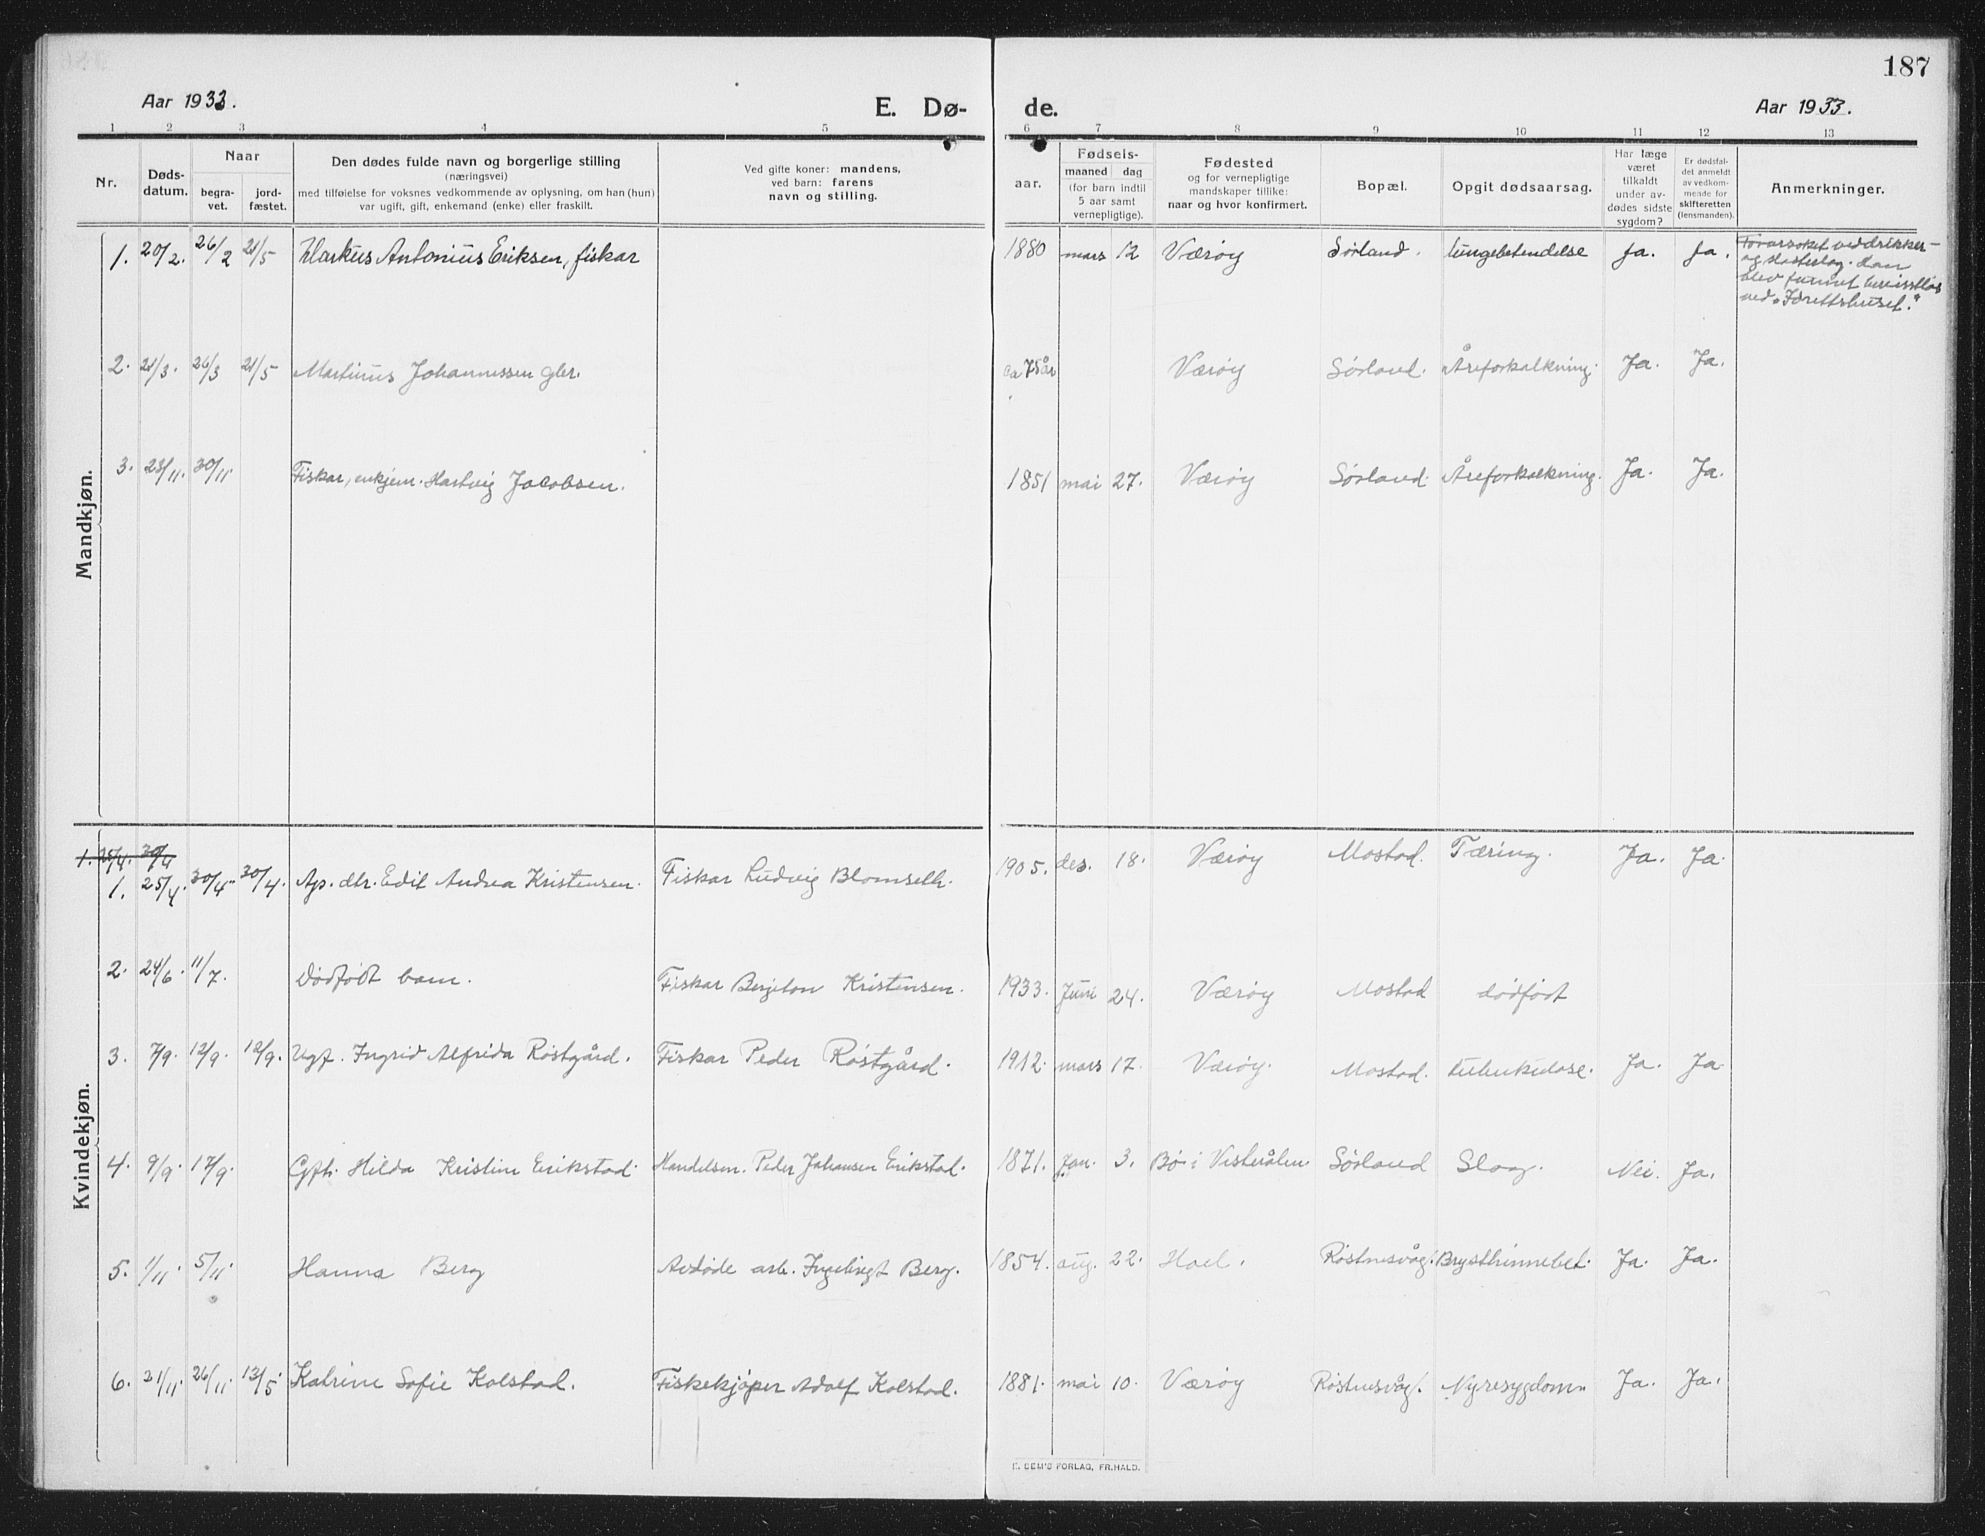 187
Aar 1933.
E. Dø-
de.
Aar 1933.
1 2 3 4 5 6 7 8 9 10 11 12 13
Nr.
Døds-
datum.
Naar
begra-
vet.
jord-
fæstet.
Den dødes fulde navn og borgerlige stilling
(næringsvei)
med tilføielse for voksnes vedkommende av oplysning, om han (hun)
var ugift, gift, enkemand (enke) eller fraskilt.
Ved gifte koner: mandens,
ved barn: farens
navn og stilling.
aar.
Fødsels-
maaned dag
(for barn indtil
5 aar samt
vernepligtige).
Fødested
og for vernepligtige
mandskaper tillike:
naar og hvor konfirmert.
Bopæl.
Opgit dødsaarsag.
Har læge
været
tilkaldt
under av-
dødes sidste
sygdom?
Er dødsfal-
det anmeldt
av vedkom-
mende for
skifteretten
(lensmanden).
Anmerkninger.
Mandkjøn.
1. 20/2. 26/2 21/5 Markus Antonius Eriksen, fiskar 1880 mars 12 Værøy Sørland. lungebetendelse Ja. Ja.
Forarsaket ved drikker-
og slasteslag. Han
blev funnet bevisstløs
ved "Idrettshuset".
2. 21/3. 26/3 21/5 Martinus Johannessen gbr. ca 75 år Værøy Sørland. Åreforkalkning. Ja. Ja.
3. 23/11. 30/11. Fiskar, enkjem. Hartvig Jacobsen. 1851 mai 27. Værøy Sørland. Åreforkalkning. Ja. Ja.
Kvindekjøn.
1. 25/4. 30/4
1. 25/4. 30/4. 30/4. Ap. dtr. Edit Andrea Kristensen. Fiskar Ludvig Blomseth. 1905. des. 18. Værøy Mostad. Tæring. Ja. Ja.
2. 24/6. 11/7. Dødfødt barn. Fiskar Kristensen. 1933. Juni 24. Værøy Mostad dødfødt
3. 7/9. 12/9. 12/9. Ugf. Ingrid Alfrida Røstgård. Fiskar Peder Røstgård. 1912. mars 17. Værøy. Mostad. tuberkulose. Ja. Ja
4. 9/9. 17/9. Gift. Hilda Kristine Erikstad. Handelsm. Peder Johansen Erikstad. 1871. Jan. 3. Bø i Vesterålen Sørland Slag. Nei. Ja.
5. 1/11. 5/11. Hanna Berg Avdøde arb. Ingebrigt Berg. 1854. aug. 22. Hol. Røstnesvåg. Brysthinnebet. Ja. Ja.
6. 21/11. 26/11. 13/5 Katrine Sofie Kolstad. Fiskekjøper Adolf Kolstad. 1881. mai 10. Værøy Røstnesvåg. Nyresygdom Ja. Ja.
FORLAG, FR.HALD.